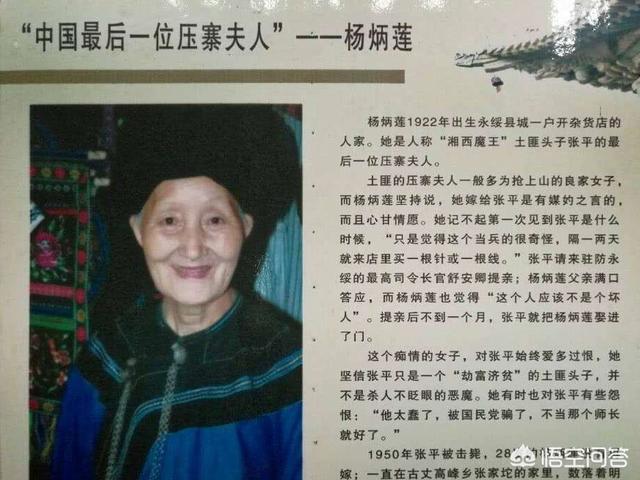 “中国最后一位压寨夫人”——杨炳莲
杨炳莲1922年出生永绥县城一户开杂货店的
人家。她是人称“湘西魔王”土匪头子张平的最
后一位压寨夫人。
土匪的压寨夫人一般多为抢上山的良家女子，
而杨炳莲坚持说，她嫁给张平是有媒妁之言的，
而且心甘情愿。她记不起第一次见到张平是什么
时候，“只是觉得这个当兵的很奇怪，隔一两天
就来店里买一根针或一根线。”张平请来驻防永
绥的最高司令长官舒安卿提亲；杨炳莲父亲满口
答应，而杨炳莲也觉得“这个人应该不是个坏
人”。提亲后不到一个月，张平就把杨炳莲娶进
了门。
这个痴情的女子，对张平始终爱多过恨，她
坚信张平只是一个“劫富济贫”的土匪头子，并
不是杀人不眨眼的恶魔。她有时也对张平有些怨
恨：“他太蠢了，被国民党骗了，不当那个师长
就好了。”
1950年张平被击毙，28
嫁；一直在古丈高峰乡张家坨的家里，数落着明
悟空问答